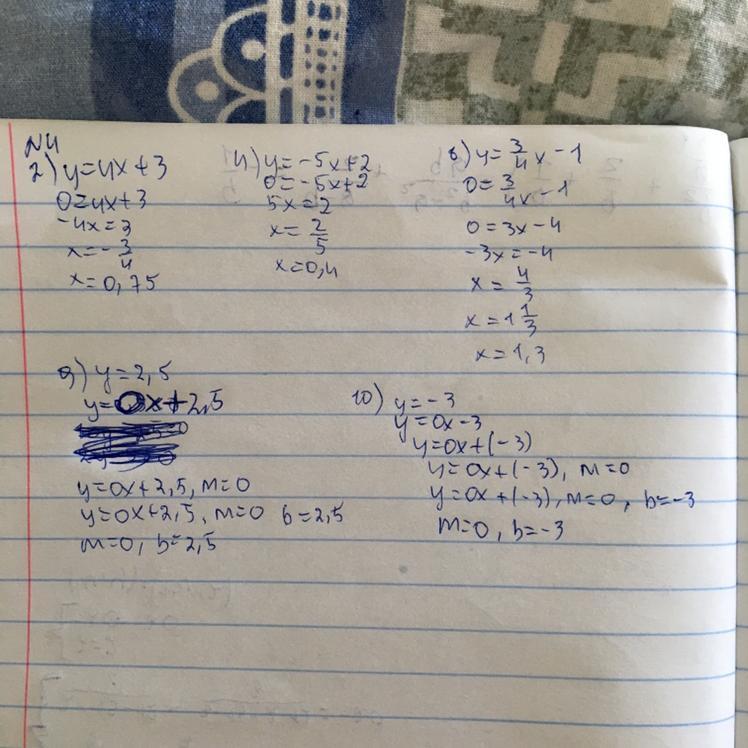 N4
2) y=4x+3
0=4x+3
-4x=3
x=-3/4
x=0,75
4) y=-5x+2
0=-5x+2
5x=2
x=2/5
x=0,4
8) y=3/4x-1
0=3/4x-1
0=3x-4
-3x=-4
x=4/3
x=1 1/3
x=1,3
9) y=2,5
y=0x+2,5
y=0x+2,5, m=0
y=0x+2,5, m=0 b=2,5
m=0, b=2,5
10) y=-3
y=0x-3
y=0x+(-3)
y=0x+(-3), m=0
y=0x+(-3), m=0, b=-3
m=0, b=-3